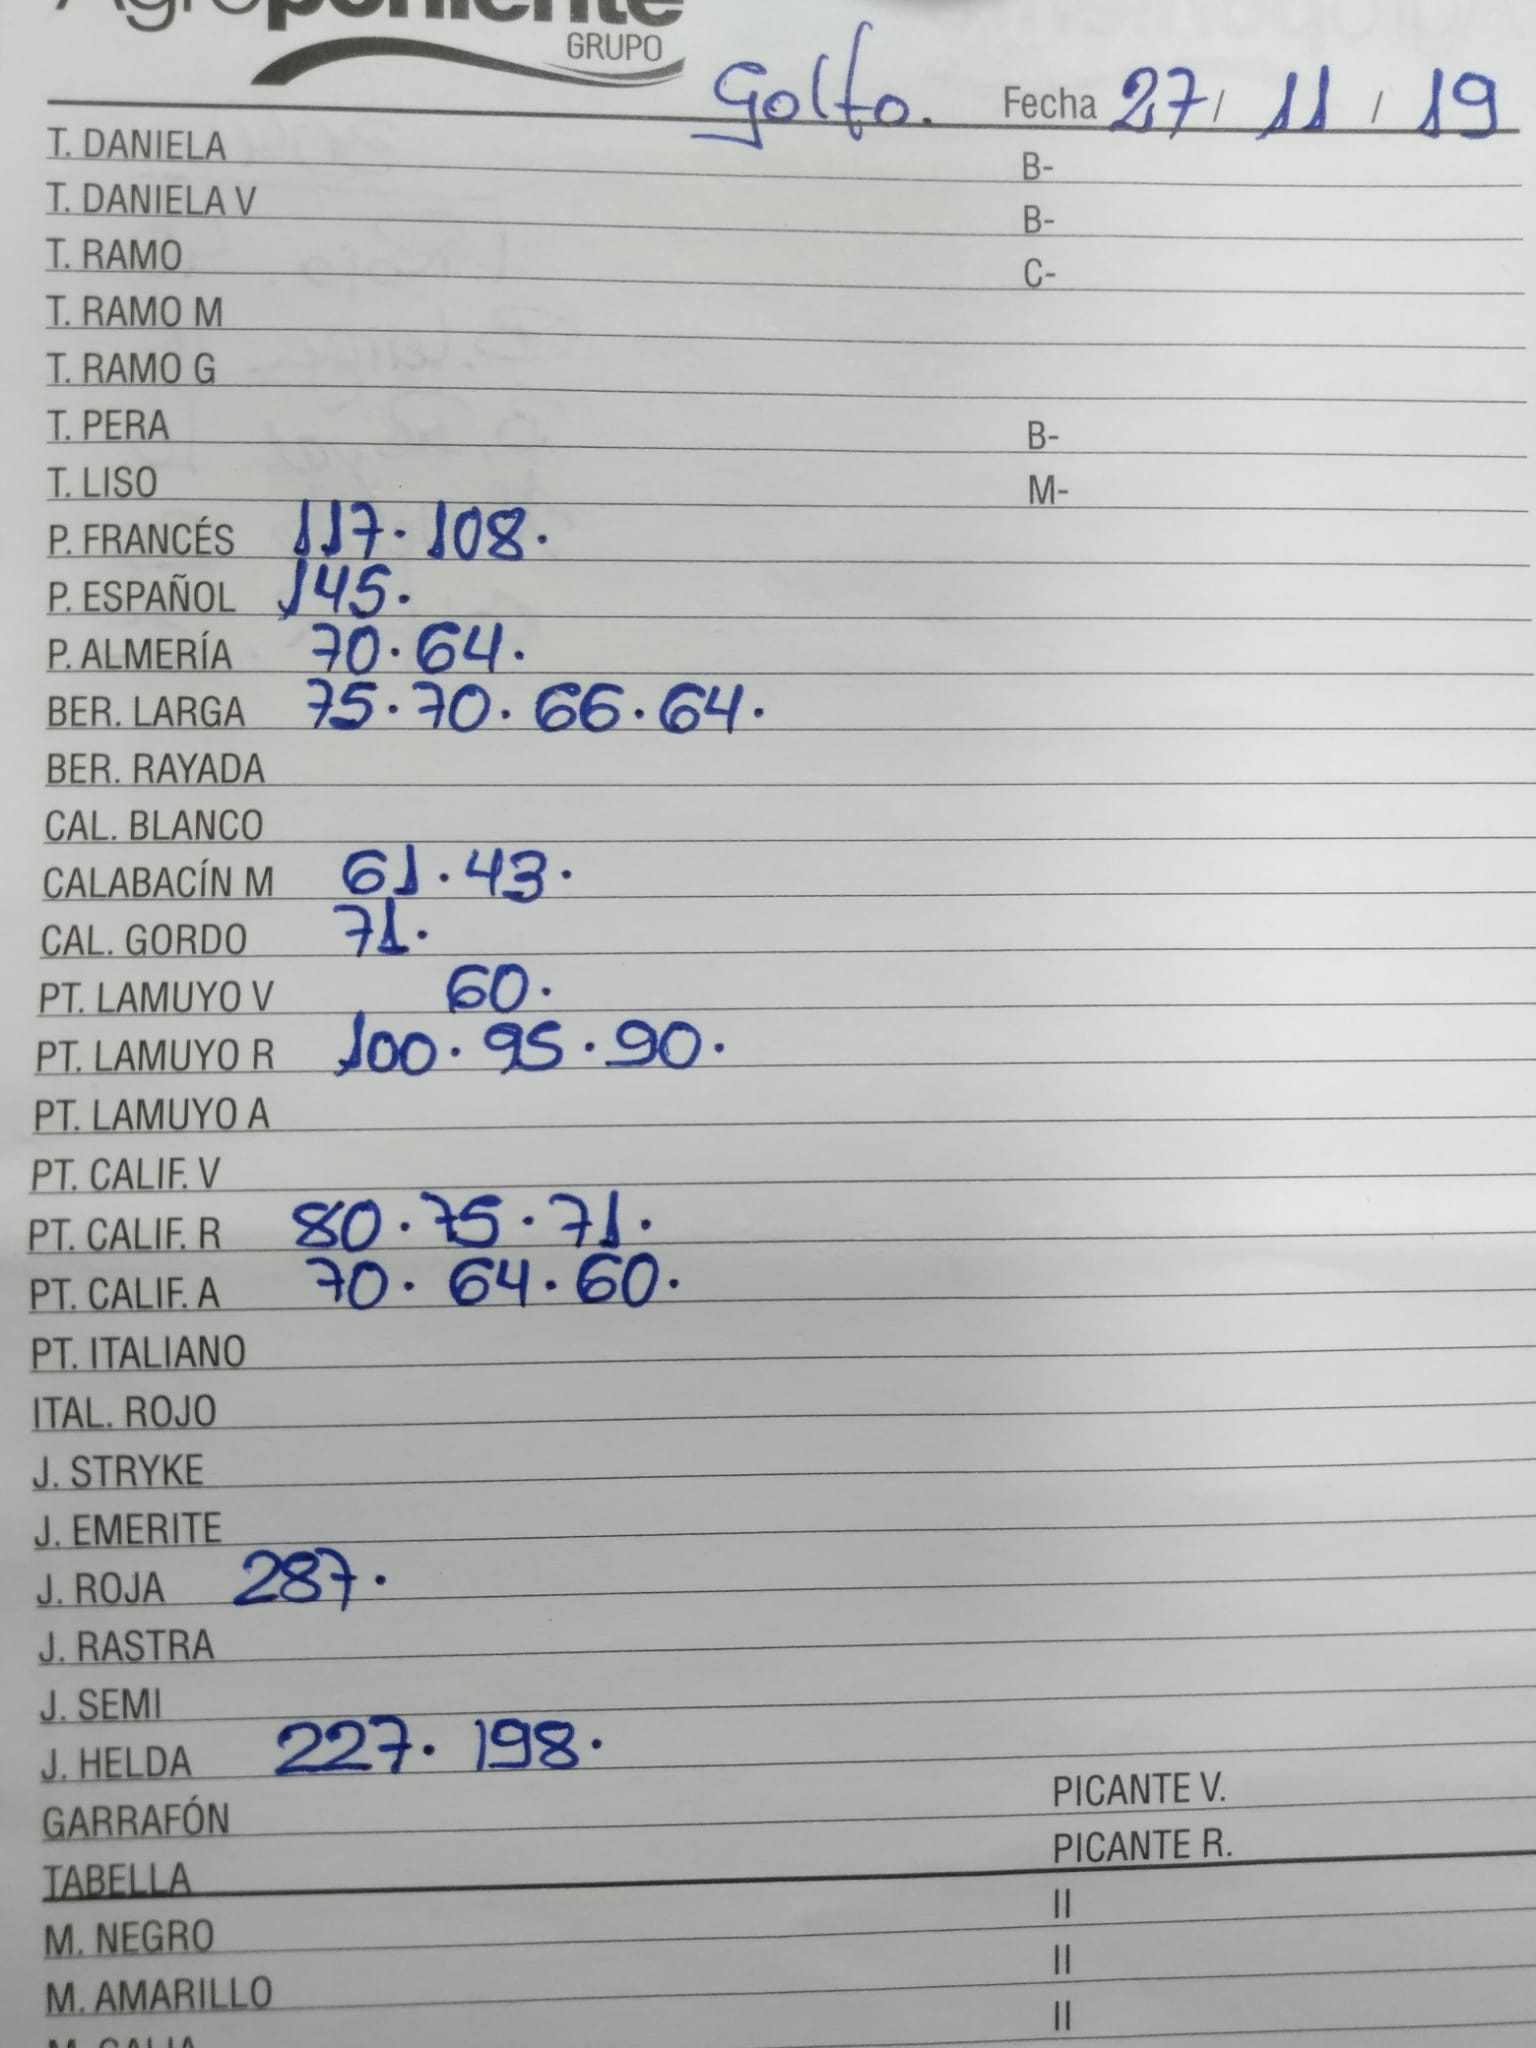 Agroponiente
GRUPO
Golfo. Fecha 27/ 11 / 19
T. DANIELA B-
T. DANIELA V B-
T. RAMO C-
T. RAMO M
T. RAMO G
T. PERA B-
T. LISO M-
P. FRANCÉS 117. 108.
P. ESPAÑOL 145.
P. ALMERÍA 70. 64.
BER. LARGA 75. 70. 66. 64.
BER. RAYADA
CAL. BLANCO
CALABACÍN M 61. 43.
CAL. GORDO 71.
PT. LAMUYO V 60.
PT. LAMUYO R 100. 95. 90.
PT. LAMUYO A
PT. CALIF. V
PT. CALIF. R 80. 75. 71.
PT. CALIF. A 70. 64. 60.
PT. ITALIANO
ITAL. ROJO
J. STRYKE
J. EMERITE
J. ROJA 287.
J. RASTRA
J. SEMI
J. HELDA 227. 198.
GARRAFÓN PICANTE V.
TABELLA PICANTE R.
M. NEGRO II
M. AMARILLO II
M. GALIA II